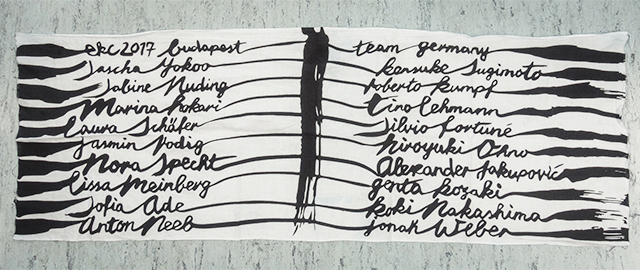 ekc 2017 budapest
Sascha Yokoo
Sabine Nuding
Marina Hokari
Laura Schäfer
Jasmin Vodig
Nora Specht
Lissa Meinberg
Sofia Ade
Anton Neeb
team germany
kensuke Sugimoto
roberto kumpf
Tino Lehmann
Silvio fortuné
hiroyuki Ohno
Alexander Jakupović
genta kozaki
koki Nakashima
Jonah Weber